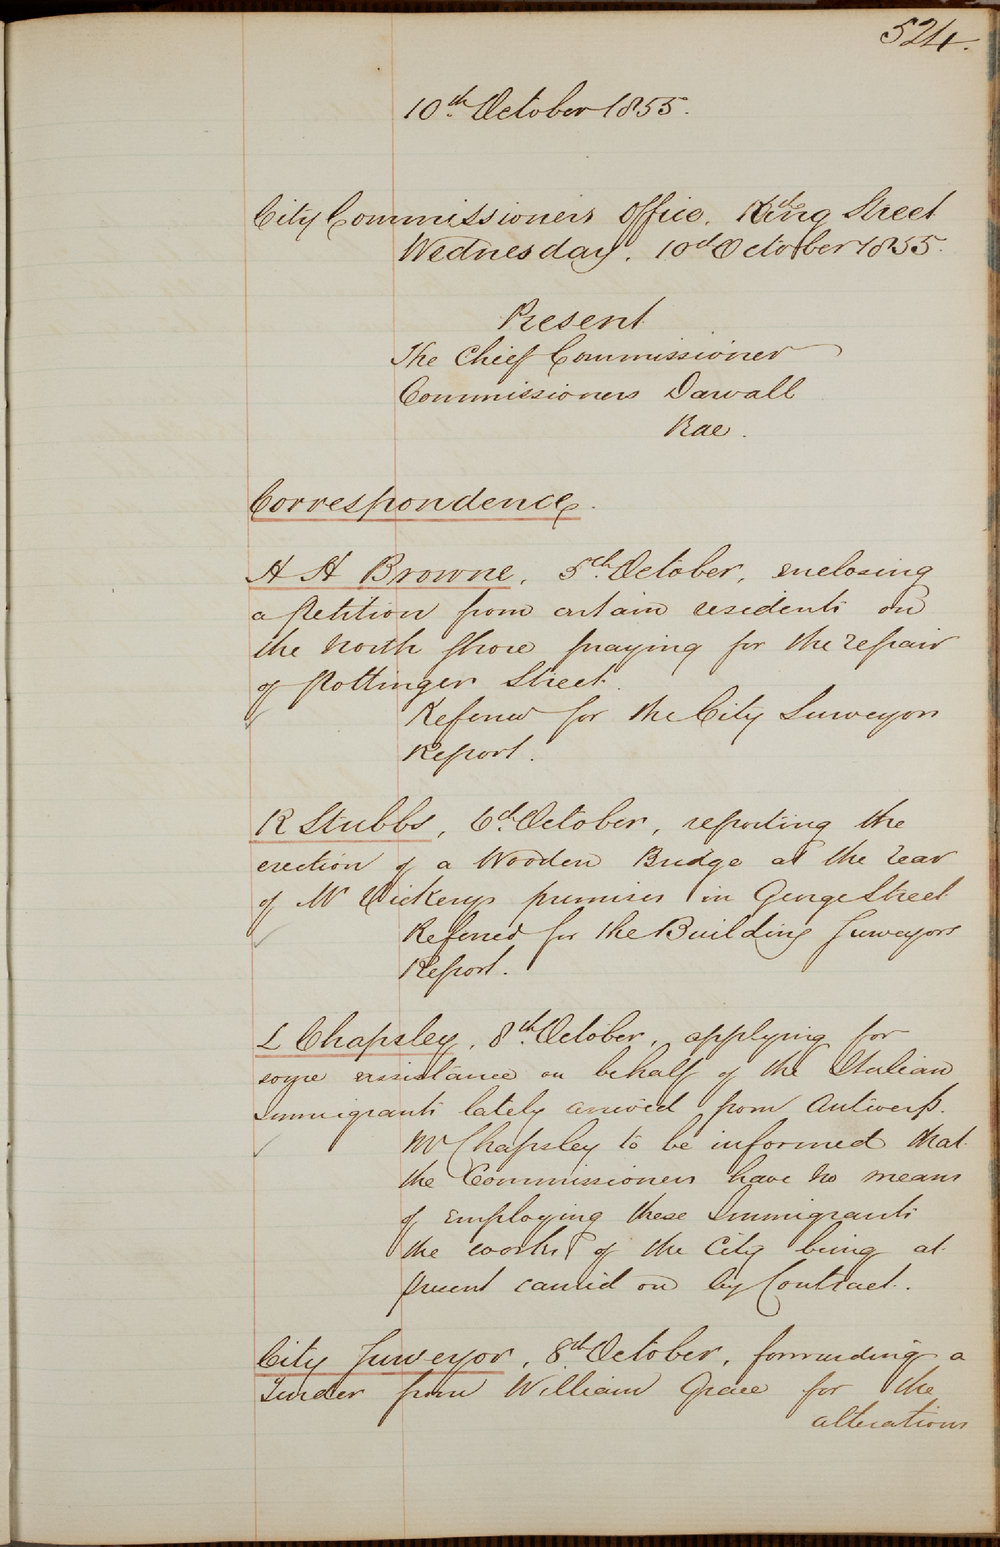 524.
10th October 1855.
City Commissioners Office. King Street
Wednesday. 10th October 1855.
Present
The Chief Commissioner
Commissioners Darvall
Rae.
Correspondence.
H H Browne, 5th October, enclosing
a petition from certain residents on
the North Shore praying for the repair
of Pottinger Street.
Referred for the City Surveyors
Report.
R Stubbs, 6th October, reporting the
erection of a Wooden Bridge at the rear
of Mr Vickerys premises in George Street
Referred for the Building Surveyors
Report.
L Chapsley, 8th October, applying for
some assistance on behalf of the Italian
Immigrants lately arrived from Antwerp.
Mr Chapsley to be informed that
the Commissioners have no means
of employing these Immigrants
the works of the City being at
present carried on by Contract.
City Surveyor, 8th October, forwarding a
Tender from William Grace for the
alterations